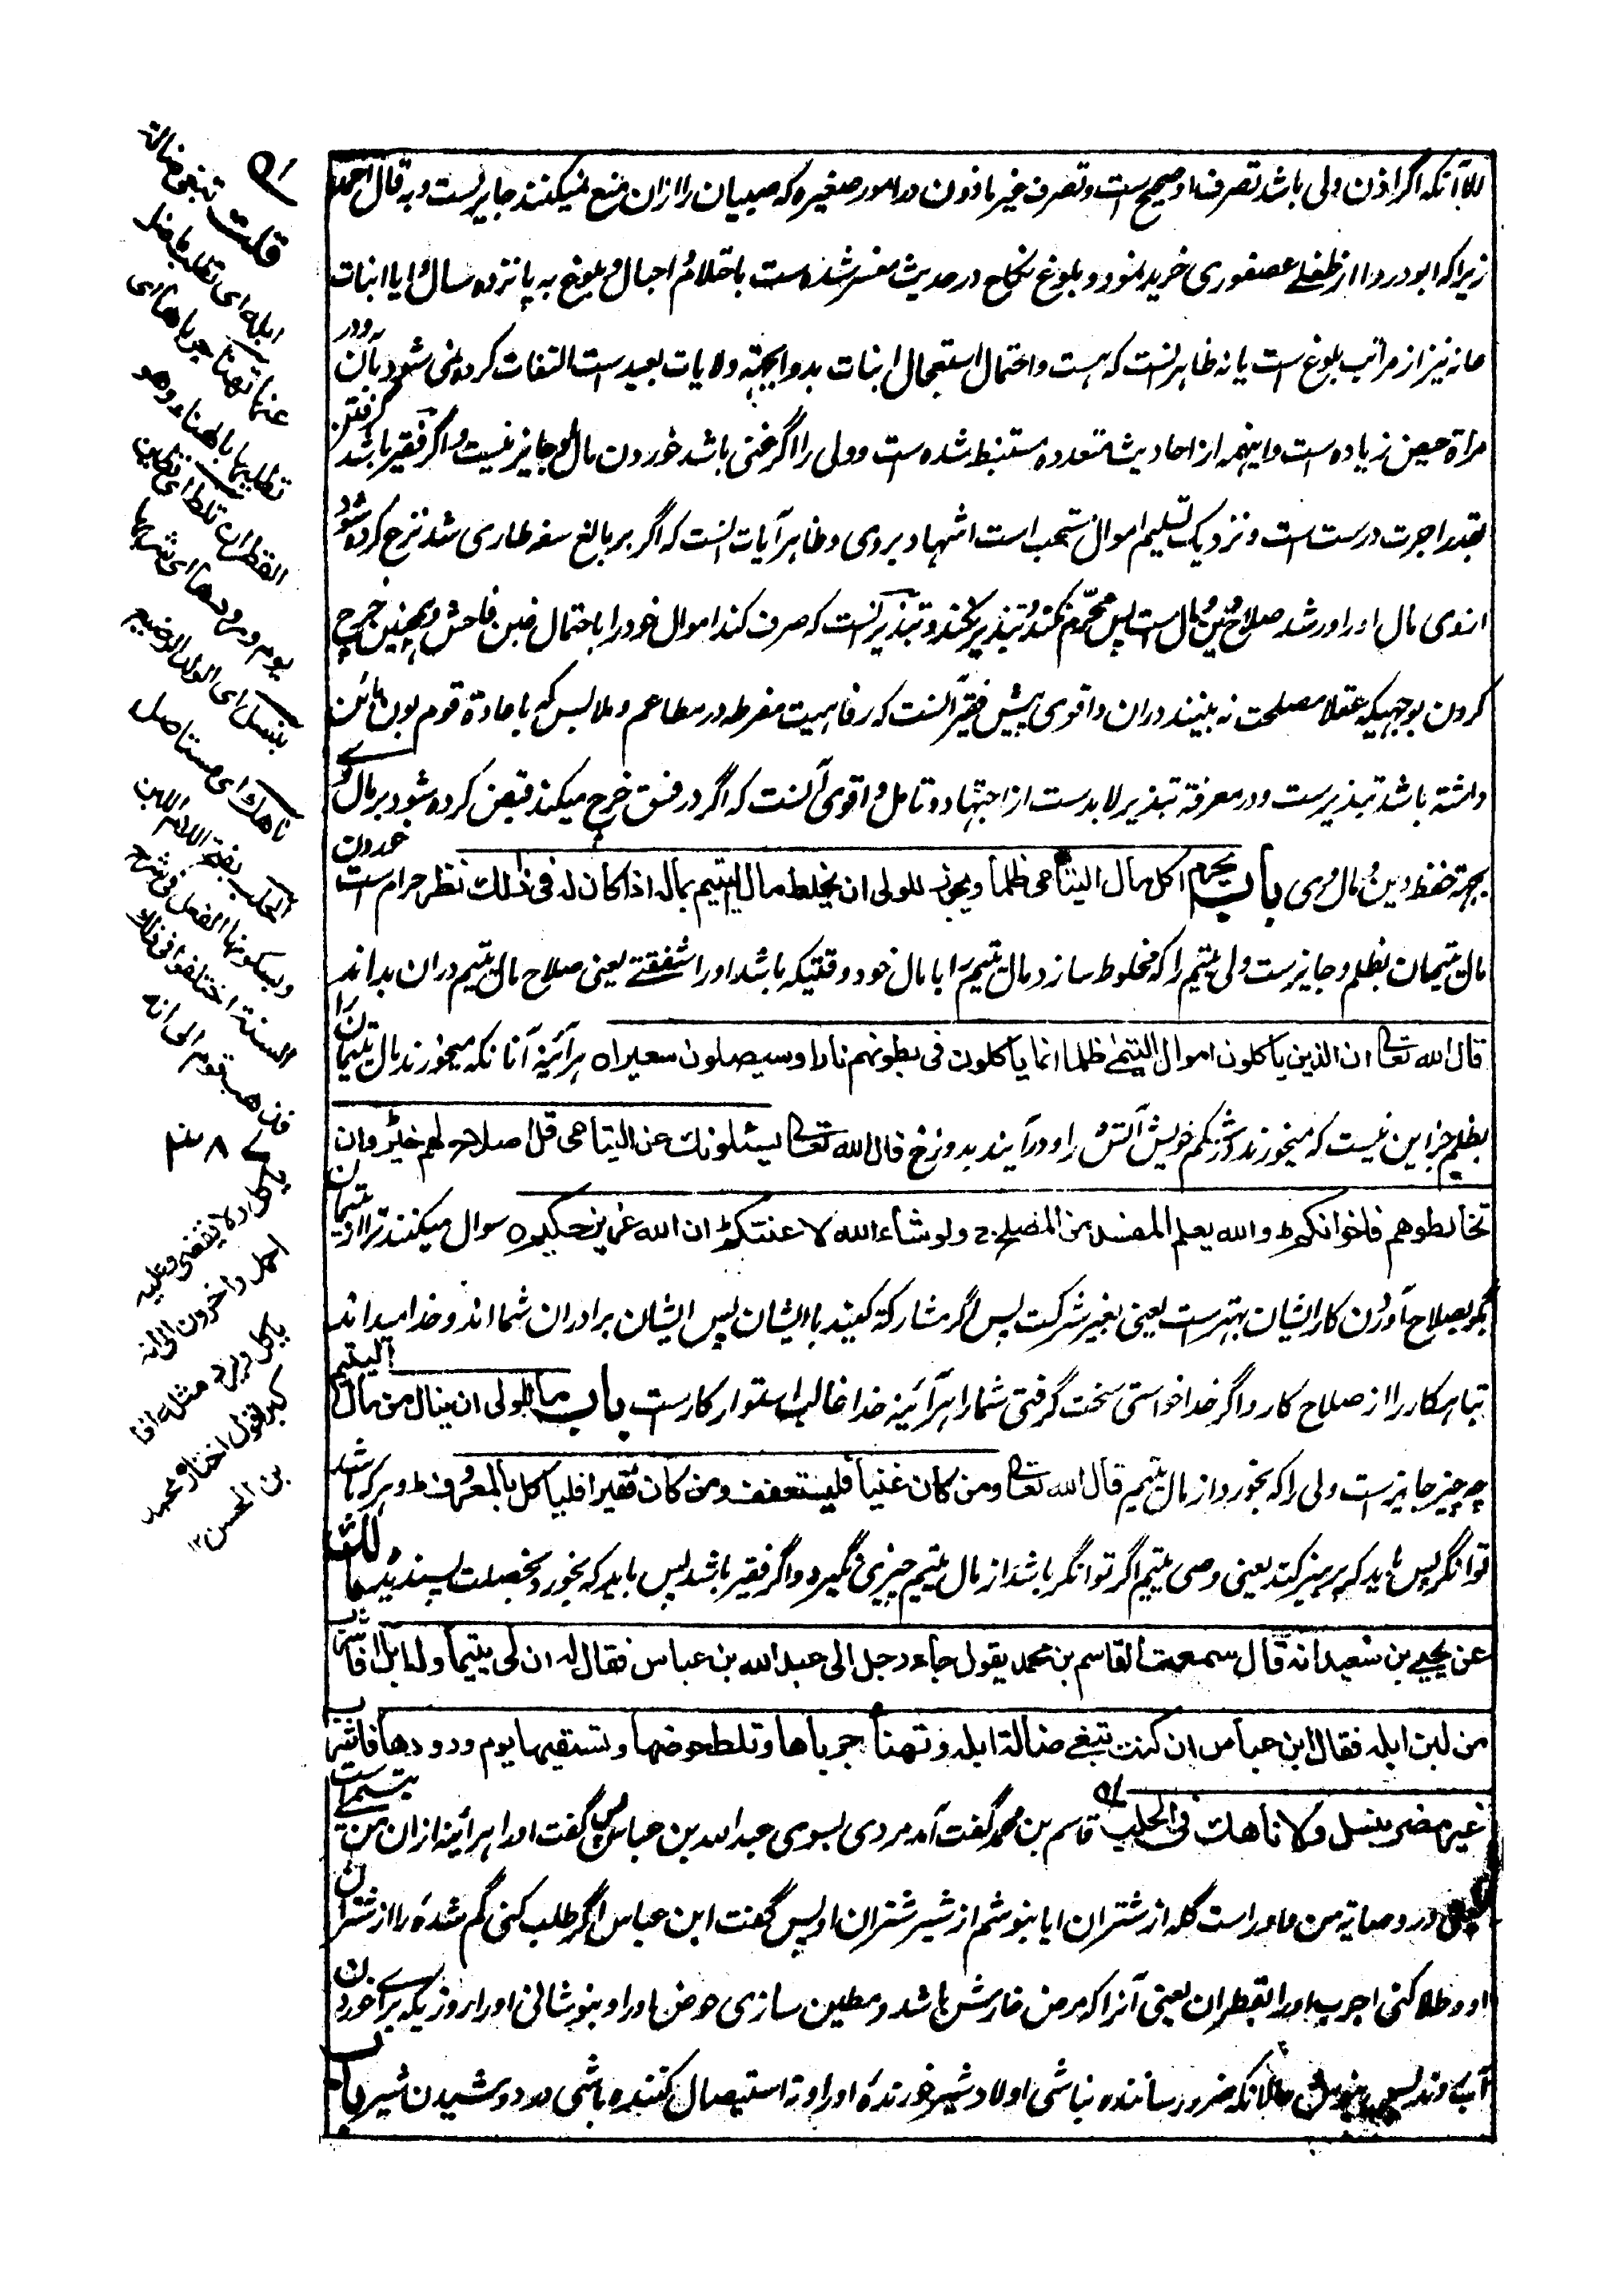 الا آنکه اگر اذن ولی باشد تصرف او صحیح است و تصرف غیر ماذون در امور صغیره که صبیان را ازان منع نمیکنند جایز است و به قال احمد
زیرا که ابو درداا از طفلے عصفوری خرید نمود و بلوغ نکاح در حدیث مفسر شده است باحتلام و احبال و بلوغ به پانزده سال و ایا انبات
عانه نیز از مراتب بلوغ است یا نه ظاهر آنست که هست و احتمال استعجال انبات بدوا بجهة ولایات بعید است التفات کرده نمی شود بآن و در
مراة حیض زیاده است و اینهمه از احادیث متعدده مستنبط شده است و ولی را اگر غنی باشد خوردن مال او جایز نیست و اگر فقیر باشد گرفتن
بقدر اجرت درست است و نزدیک تسلیم اموال مستحب است اشهاد بروی و ظاهر آیات آنست که اگر بر بالغ سفه طاری شد نزع کرده شود
ازوی مال او را و رشد صلاح دین و مال است پس محرم نکند و تبذیر نکند و تبذیر آنست که صرف کند اموال خود را باحتمال غبن فاحش و همچنین خرج
کردن بوجهیکه عقلا مصلحت نه بینند دران و اقوی پیش فقیر آنست که رفاهیت مفرطه در مطاعم و ملابس که با عادة قوم بون بائن
داشته باشد تبذیرست و در معرفة تبذیر لابدست از اجتهاد و تامل و اقوی آنست که اگر در فسق خرج میکند قبض کرده شود بر مال وے
بجهة حفظ دین و مال وی باب یحرم اکل مال الیتامی ظلما ویجوز للولی ان یخلط مال الیتیم بماله اذا کان له فی ذلك نظر حرام است خوردن
مال یتیمان بظلم و جایزست ولی یتیم را که مخلوط سازد مال یتیم را با مال خود وقتیکه باشد او را شفقتے یعنی صلاح مال یتیم دران بداند
قال الله تعالی ان الذین یاکلون اموال الیتمی ظلما انما یاکلون فی بطونهم نارا وسیصلون سعیرا ه هر آئینه آنانکه میخورند مال یتیمان را
بظلم جز این نیست که میخورند در شکم خویش آتش را و در آیند بدوزخ قال الله تعالی یسئلونك عن الیتامی قل اصلاح لهم خیر وان
تخالطوهم فاخوانکم ط والله یعلم المفسد من المصلح ج ولو شاء الله لاعنتکم ط ان الله عزیز حکیم ه سوال میکنند ترا از یتیمان
بگو بصلاح آوردن کار ایشان بهترست یعنی بغیر شرکت پس اگر مشارکة کنید با ایشان پس ایشان برادران شما اند و خدا میداند
تباهکار را از صلاح کار و اگر خدا خواستی سخت گرفتی شما را هر آئینه خدا غالب استوار کارست باب ما للولی ان ینال من مال الیتیم
چه چیز جایزست ولی را که بخورد از مال یتیم قال الله تعالی ومن کان غنیا فلیستعفف ومن کان فقیرا فلیاکل بالمعروف ط و هر که باشد
توانگر پس باید که پرهیز کند یعنی وصی یتیم اگر توانگر باشد از مال یتیم چیزی نگیرد و اگر فقیر باشد پس باید که بخورد بخصلت پسندیده مالك
عن یحیے بن سعید انه قال سمعت القاسم بن محمد یقول جاء رجل الی عبد الله بن عباس فقال له ان لی یتیما وله ابل افاشرب
من لبن ابله فقال ابن عباس ان کنت تبغی ضالة ابله وتهنأ جرباها وتلط حوضها وتسقیها یوم ورودها فاشرب
غیر مضر بنسل ولا ناهك فی الحلب قاسم بن محمد گفت آمد مردی بسوی عبد الله بن عباس پس گفت او را هر آئینه ازان من یتیمے است
یعنی در وصایة من و او راست گله از شتران ایا بنوشم از شیر شتران او پس گفت ابن عباس اگر طلب کنی گم شده را از شتران
او و طلا کنی اجرب او را بقطران یعنی آنرا که مرض خارش باشد و مطین سازی حوض او را و بنوشانی او را روزیکه برای خوردن
آب آیند پس بنوش حالانکه ضرر رساننده نباشی اولاد شیر خورنده او را و نه استیصال کننده باشی در دوشیدن شیر باب
قلت تبغی ضالة
ابله ای تطلب ما ضل
عنها تهنأ جرباها ای
تطلیها بالهناء وهو
القطران تلط ای تطین
یوم ورودها ای شربها
بنسل ای الولد الرضیع
ناهك ای مستاصل
الحلب بفتح اللام اللبن
وبسکونها الفعل فی شرح
السنة اختلفوا فی ذلك
فذهب قوم الی انه
یاکل ولا یقضی وعلیه
احمد واخرون الی انه
یاکل ویرد مثله اذا
کبر
بن الحسن ۱۲